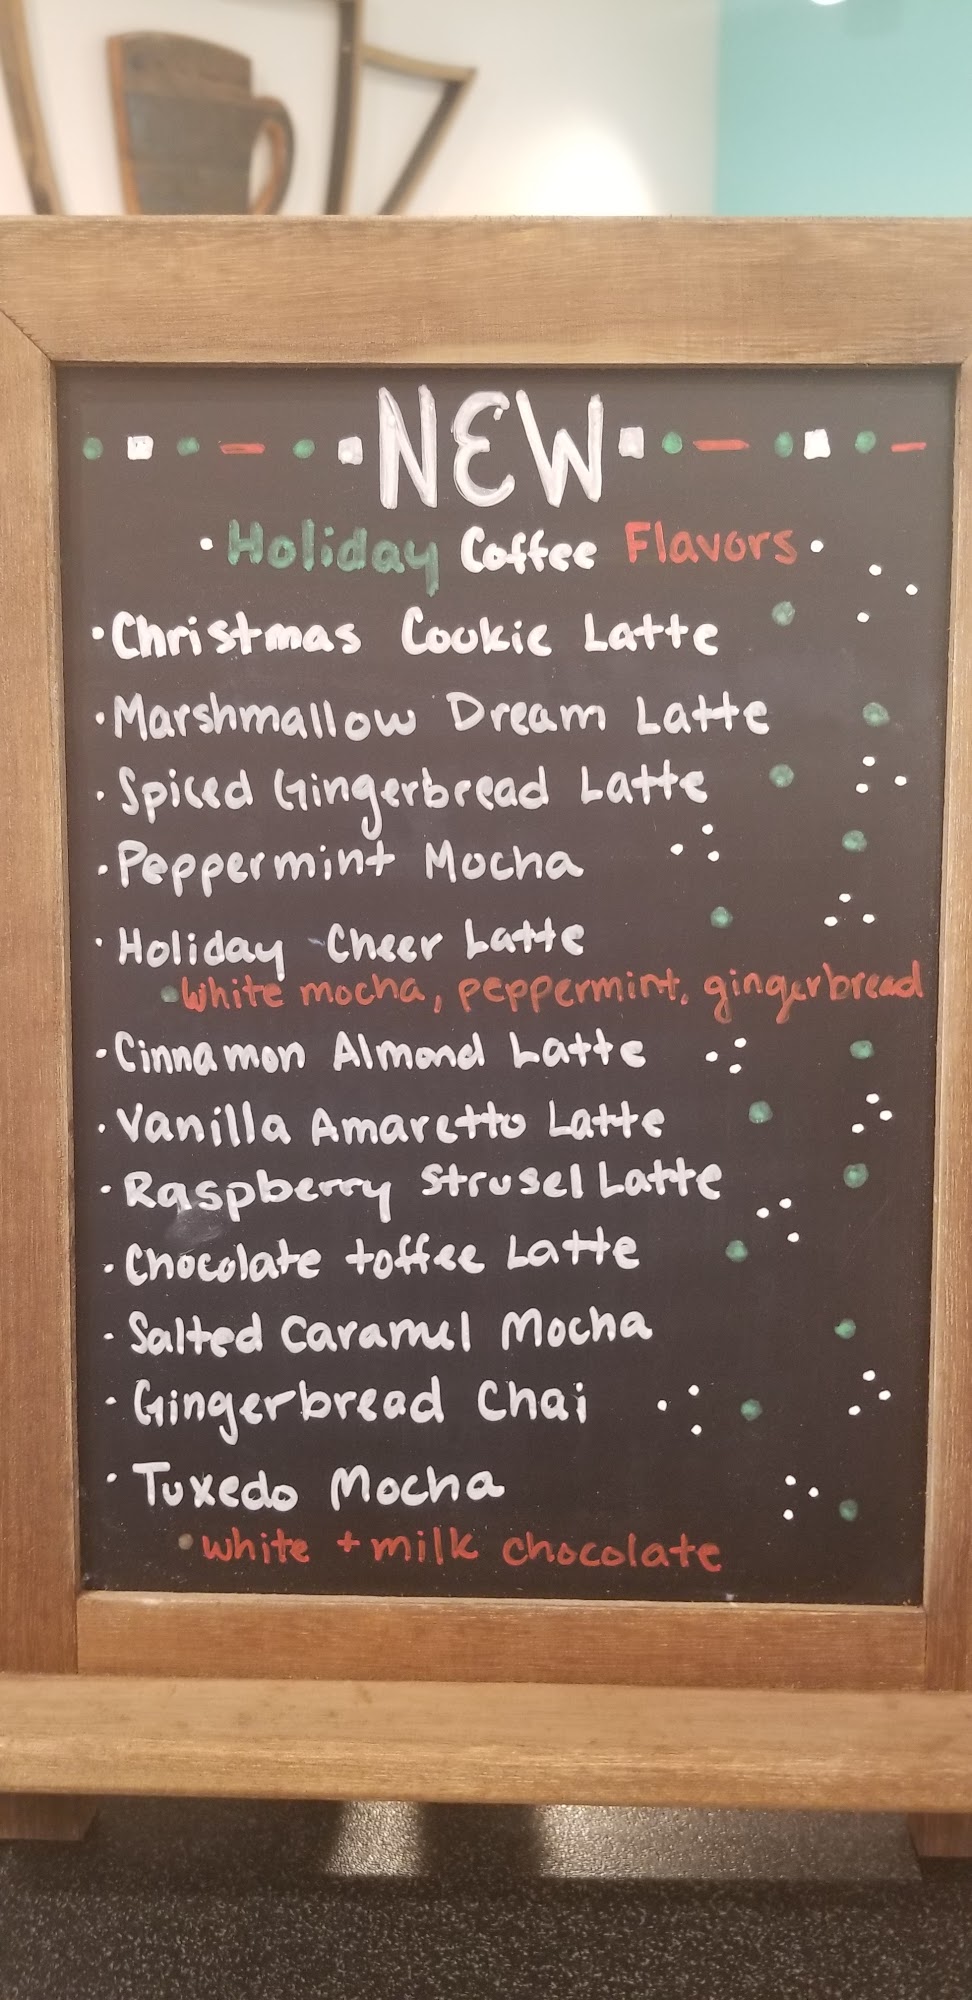 NEW
Holiday Coffee Flavors
Christmas Cookie Latte
Marshmallow Dream Latte
Spiced Gingerbread Latte
Peppermint Mocha
Holiday Cheer Latte
white mocha, peppermint, gingerbread
Cinnamon Almond Latte
Vanilla Amaretto Latte
Raspberry Strusel Latte
Chocolate toffee Latte
Salted Caramel Mocha
Gingerbread Chai
Tuxedo Mocha
white + milk chocolate